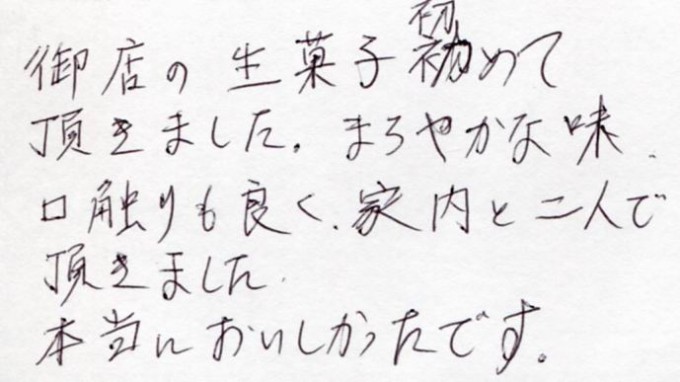 御店の生菓子初めて
頂きました。まろやかな味、
口触りも良く、家内と二人で
頂きました
本当においしかったです。